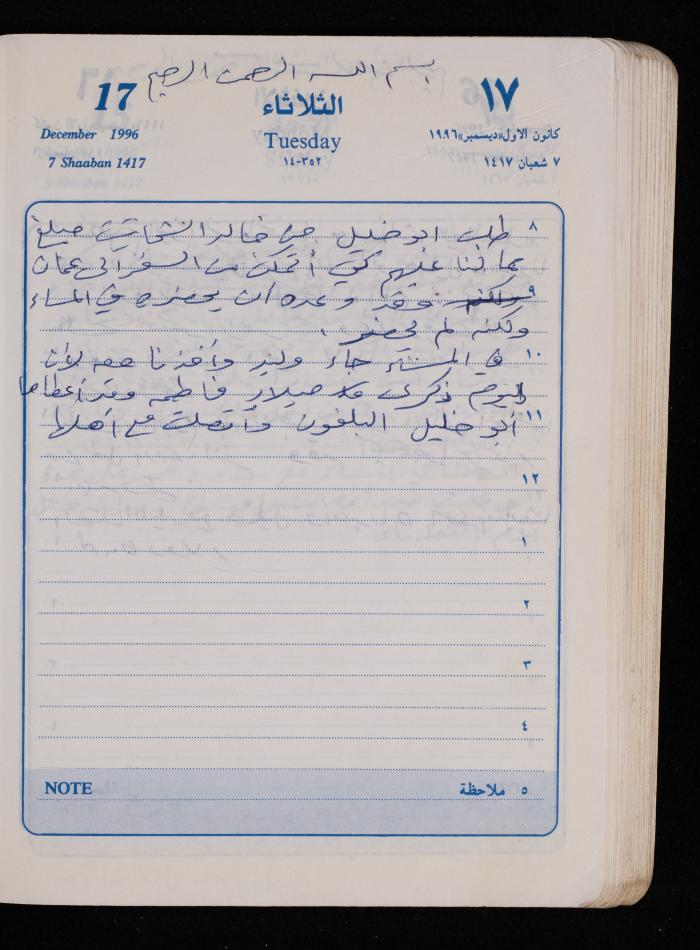 بسم الله الرحمن الرحيم
17 الثلاثاء ١٧
December 1996 Tuesday كانون الاول«ديسمبر»١٩٩٦
7 Shaaban 1417 ١٤-٣٥٢ ٧ شعبان ١٤١٧
٨ طلب ابو خليل من خالد مبلغ
عليهم كي أتمكن من السفر الى عمان
٩ ولكنه فقد وعده ان يحضره في المساء
ولكنه لم يحضر .
١٠ في المساء جاء وليد وأخذنا معه لأن
اليوم ذكرى ميلاد فاطمه وقد أعطاها
١١ أبو خليل التلفون وأتصلت مع أهلها
١٢
١
٢
٣
٤
NOTE ٥ ملاحظة